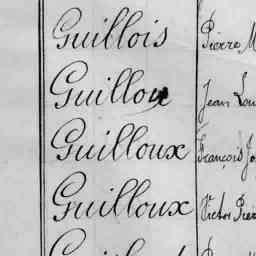 Guillois Pierre M
Guillou Jean Lou
Guilloux François Jo
Guilloux Victor Pier